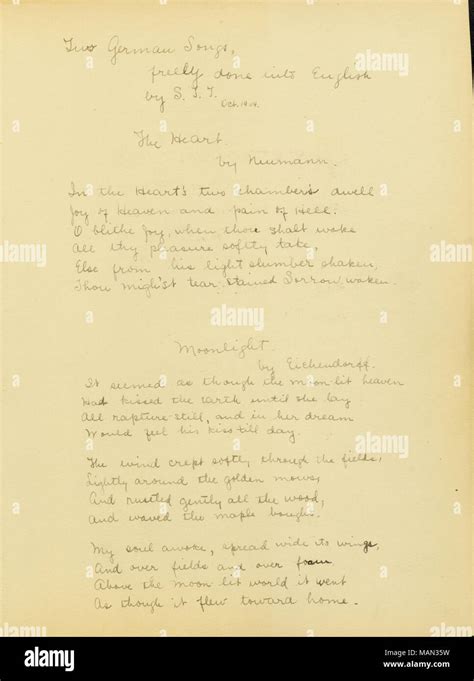 Two German Songs,
freely done into English
by S. T. T.
Oct. 1904.
The Heart.
by Neumann.
In the Heart's two chambers dwell
Joy of Heaven and pain of Hell.
O blithe Joy, when thou shalt wake
All thy pleasure softly take,
Else from his light slumber shaken,
Thou might'st tear stained Sorrow waken.
Moonlight.
by Eichendorff.
It seemed as though the moon-lit heaven
Had kissed the earth until she lay
All rapture-still, and in her dream
Would feel his kiss till day.
The wind crept softly through the fields,
Lightly around the golden mows,
And rustled gently all the wood,
And waved the maple boughs.
My soul awoke, spread wide its wings,
And over fields and over foam
Above the moon lit world it went
As though it flew toward home.
alamy
alamy
alamy
alamy
alamy
alamy
alamy
Image ID: MAN35W
www.alamy.com